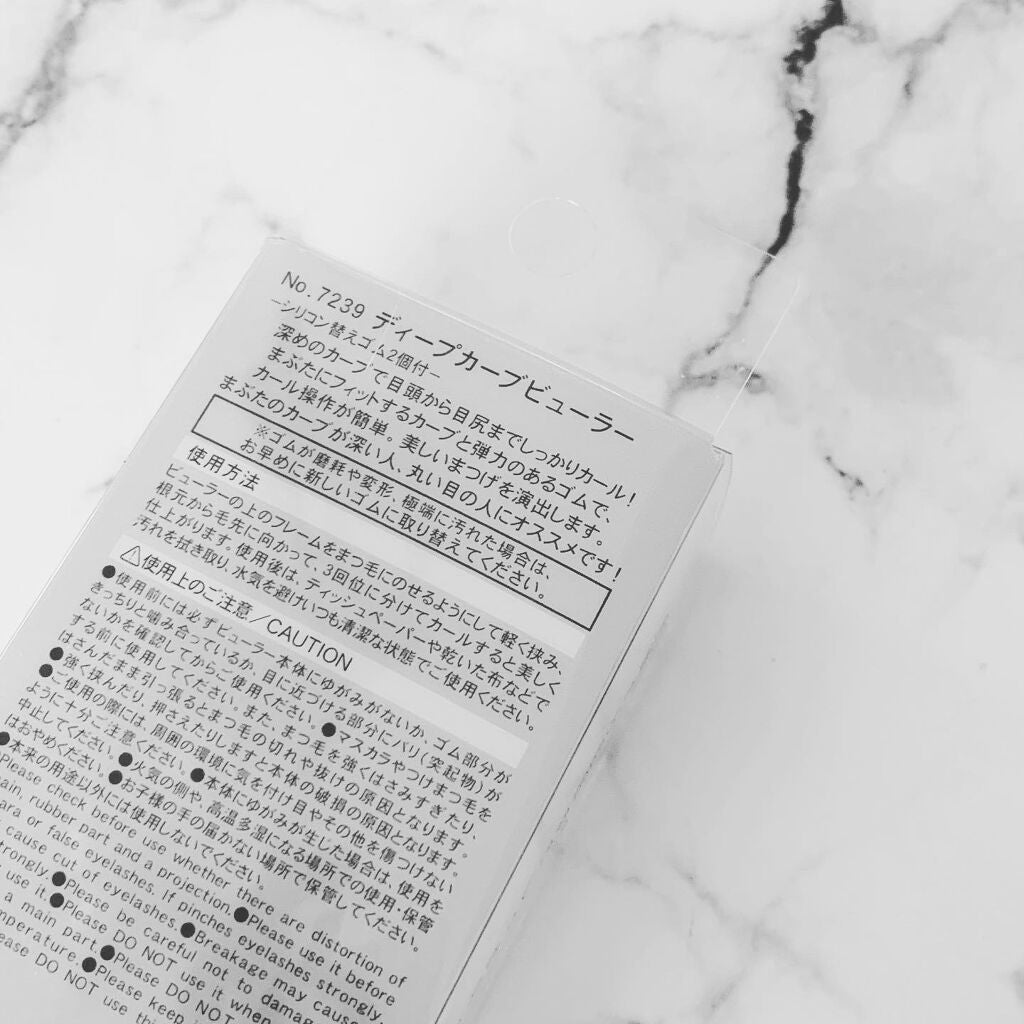 No. 7239 ディープカーブビューラー
−シリコン替えゴム2個付−
深めのカーブで目頭から目尻までしっかりカール!
まぶたにフィットするカーブと弾力のあるゴムで、
カール操作が簡単。美しいまつげを演出します。
まぶたのカーブが深い人、丸い目の人にオススメです!
※ゴムが磨耗や変形、極端に汚れた場合は、
お早めに新しいゴムに取り替えてください。
使用方法
ビューラーの上のフレームをまつ毛にのせるようにして軽く挟み、
根元から毛先に向かって、3回位に分けてカールすると美しく
仕上がります。使用後は、ティッシュペーパーや乾いた布などで
汚れを拭き取り、水気を避けいつも清潔な状態でご使用ください。
⚠使用上のご注意/CAUTION
●使用前には必ずビューラー本体にゆがみがないか、ゴム部分が
きっちりと噛み合っているか、目に近づける部分にバリ(突起物)が
ないかを確認してからご使用ください。●マスカラやつけまつ毛を
する前に使用してください。また、まつ毛を強くはさみすぎたり、
はさんだまま引っ張るとまつ毛の切れや抜けの原因となります。
●強く挟んだり、押さえたりしますと本体の破損の原因となります。
●ご使用の際には、周囲の環境に気を付け目やその他を傷つけない
ように十分ご注意ください。●本体にゆがみが生じた場合は、使用を
中止してください。●火気の側や、高温多湿になる場所での使用、保管
はおやめください。●お子様の手の届かない場所で保管してください。
●本来の用途以外には使用しないでください。
Please check before use whether there are distortion of
rubber part and a projection.●Please use it before
or false eyelashes. If pinches eyelashes strongly,
cause cut of eyelashes.●Breakage may cause
●Please be careful not to
use it.●Please DO NOT use it when
a main part.●Please DO NOT
●Please keep
DO NOT use